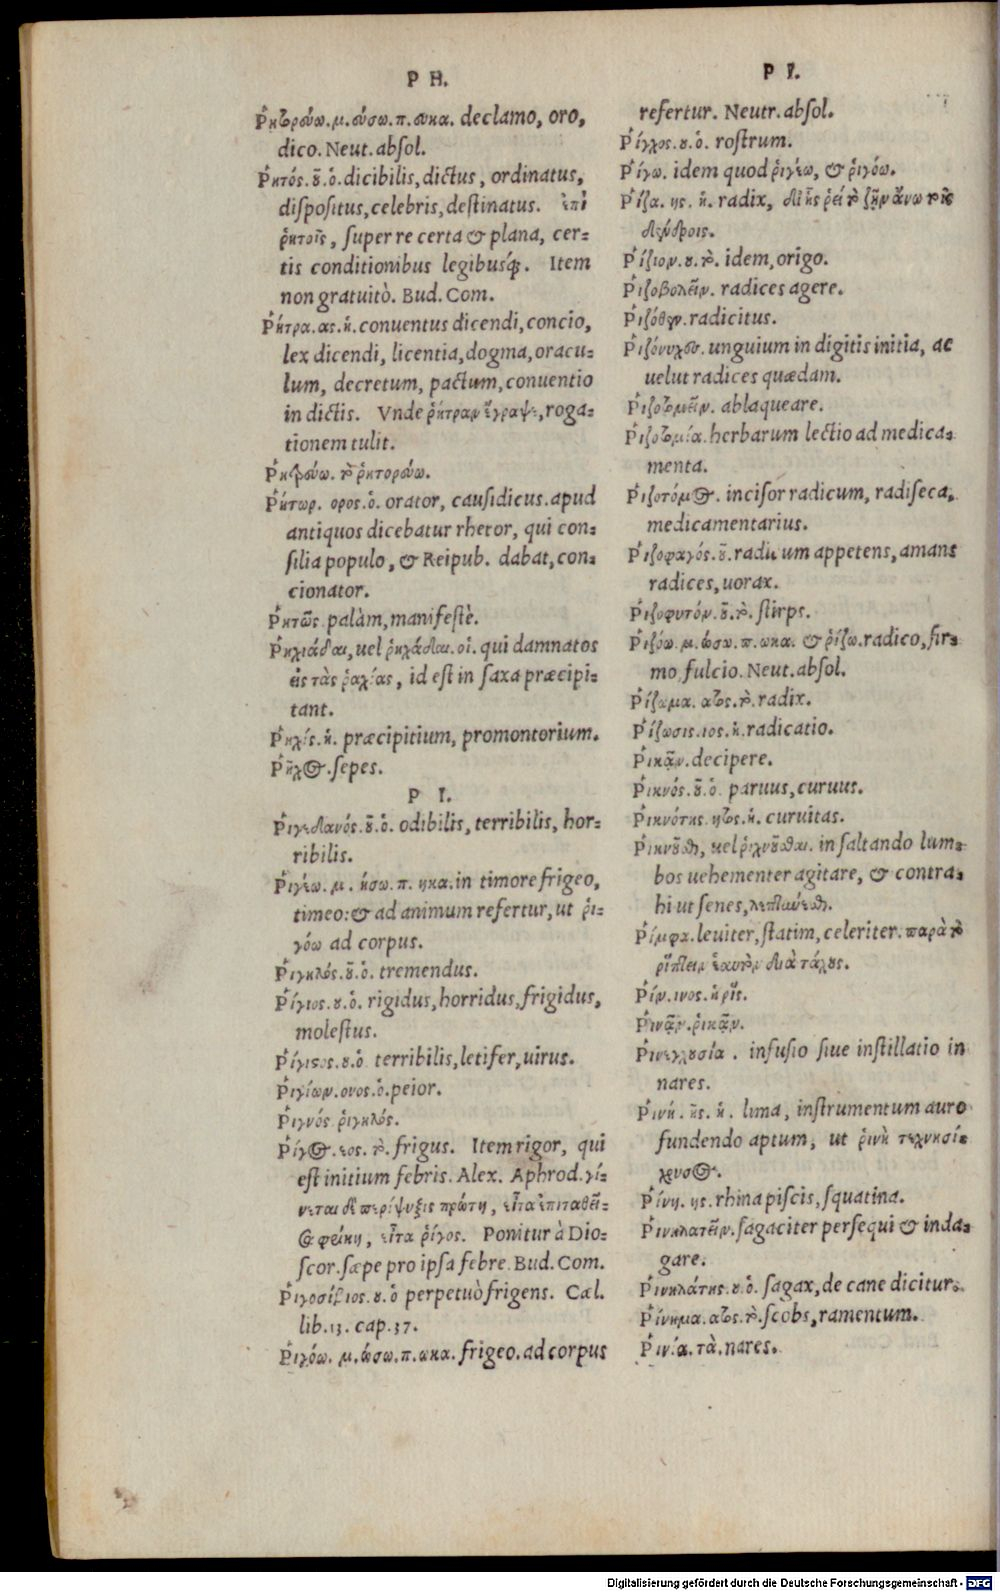 Ρ Η.
Ῥητορεύω. μ. εύσω. π. ευκα. declamo, oro,
dico. Neut. absol.
Ῥητός. οῦ. ὁ. dicibilis, dictus, ordinatus,
dispositus, celebris, destinatus. ἐπὶ
ῥητοῖς, super re certa & plana, cer-
tis conditionibus legibusq́;. Item
non gratuitò. Bud. Com.
Ῥήτρα. ας. ἡ. conuentus dicendi, concio,
lex dicendi, licentia, dogma, oracu-
lum, decretum, pactum, conuentio
in dictis. Vnde ῥήτραν ἔγραψε, roga-
tionem tulit.
Ῥητρεύω. τὸ ῥητορεύω.
Ῥήτωρ. ορος. ὁ. orator, causidicus. apud
antiquos dicebatur rhetor, qui con-
silia populo, & Reipub. dabat, con-
cionator.
Ῥητῶς. palàm, manifestè.
Ῥηχιάδαι, uel ῥηχάδαι. οἱ. qui damnatos
εἰς τὰς ῥαχίας, id est in saxa præcipi-
tant.
Ῥηχίς. ἡ. præcipitium, promontorium.
Ῥῆχος. sepes.
Ρ Ι.
Ῥιγεδανός. οῦ. ὁ. odibilis, terribilis, hor-
ribilis.
Ῥιγέω. μ. ήσω. π. ηκα. in timore frigeo,
timeo: & ad animum refertur, ut ῥι-
γόω ad corpus.
Ῥιγηλός. οῦ. ὁ. tremendus.
Ῥίγιος. ου. ὁ. rigidus, horridus, frigidus,
molestus.
Ῥίγιστος. ου. ὁ. terribilis, letifer, uirus.
Ῥιγίων. ονος. ὁ. peior.
Ῥιγνός ῥιγηλός.
Ῥίγος. εος. τὸ. frigus. Item rigor, qui
est initium febris. Alex. Aphrod. γί-
νεται δὲ περίψυξις πρώτη, εἶτα ἐπιταθεῖ-
σα φρίκη, εἶτα ῥίγος. Ponitur à Dio-
scor. sæpe pro ipsa febre. Bud. Com.
Ῥιγοσίβιος. ου. ὁ perpetuò frigens. Cæl.
lib. 13. cap. 37.
Ῥιγόω. μ. ώσω. π. ωκα. frigeo. ad corpus
Ρ Ι.
refertur. Neutr. absol.
Ῥίγχος. ου. ὁ. rostrum.
Ῥίγω. idem quod ῥιγέω, & ῥιγόω.
Ῥίζα. ης. ἡ. radix, δι' ἧς ῥεῖ τὸ ζῆν ἄνω τοῖς
δένδροις.
Ῥίζιον. ου. τὸ. idem, origo.
Ῥιζοβολεῖν. radices agere.
Ῥιζόθεν. radicitus.
Ῥιζόνυχον. unguium in digitis initia, ac
uelut radices quædam.
Ῥιζοτομεῖν. ablaqueare.
Ῥιζοτομία. herbarum lectio ad medica-
menta.
Ῥιζοτόμος. incisor radicum, radiseca,
medicamentarius.
Ῥιζοφαγός. οῦ. radicum appetens, amans
radices, uorax.
Ῥιζοφυτόν. οῦ. τὸ. stirps.
Ῥιζόω. μ. ώσω. π. ωκα. & ῥίζω. radico, fir-
mo, fulcio. Neut. absol.
Ῥίζωμα. ατος. τὸ. radix.
Ῥίζωσις. ιος. ἡ. radicatio.
Ῥικᾷν. decipere.
Ῥικνός. οῦ. ὁ. paruus, curuus.
Ῥικνότης. ητος. ἡ. curuitas.
Ῥικνοῦσθαι, uel ῥιχνοῦσθαι. in saltando lum-
bos uehementer agitare, & contra-
hi ut senes, λεπταύεσθαι.
Ῥίμφα. leuiter, statim, celeriter. παρὰ τὸ
ῥίπτειν ἑαυτὸν διὰ τάχους.
Ῥίν. ινος. ἡ ῥίς.
Ῥινᾷν. ῥικᾷν.
Ῥινεγχυσία. infusio siue instillatio in
nares.
Ῥινή. ῆς. ἡ. lima, instrumentum auro
fundendo aptum, ut ῥινὴ τεχνησί-
χρυσος.
Ῥίνη. ης. rhina piscis, squatina.
Ῥινηλατεῖν. sagaciter persequi & inda-
gare.
Ῥινηλάτης. ου. ὁ. sagax, de cane dicitur.
Ῥίνημα. ατος. τὸ. scobs, ramentum.
Ῥινία. τὰ. nares.
Digitalisierung gefördert durch die Deutsche Forschungsgemeinschaft - DFG